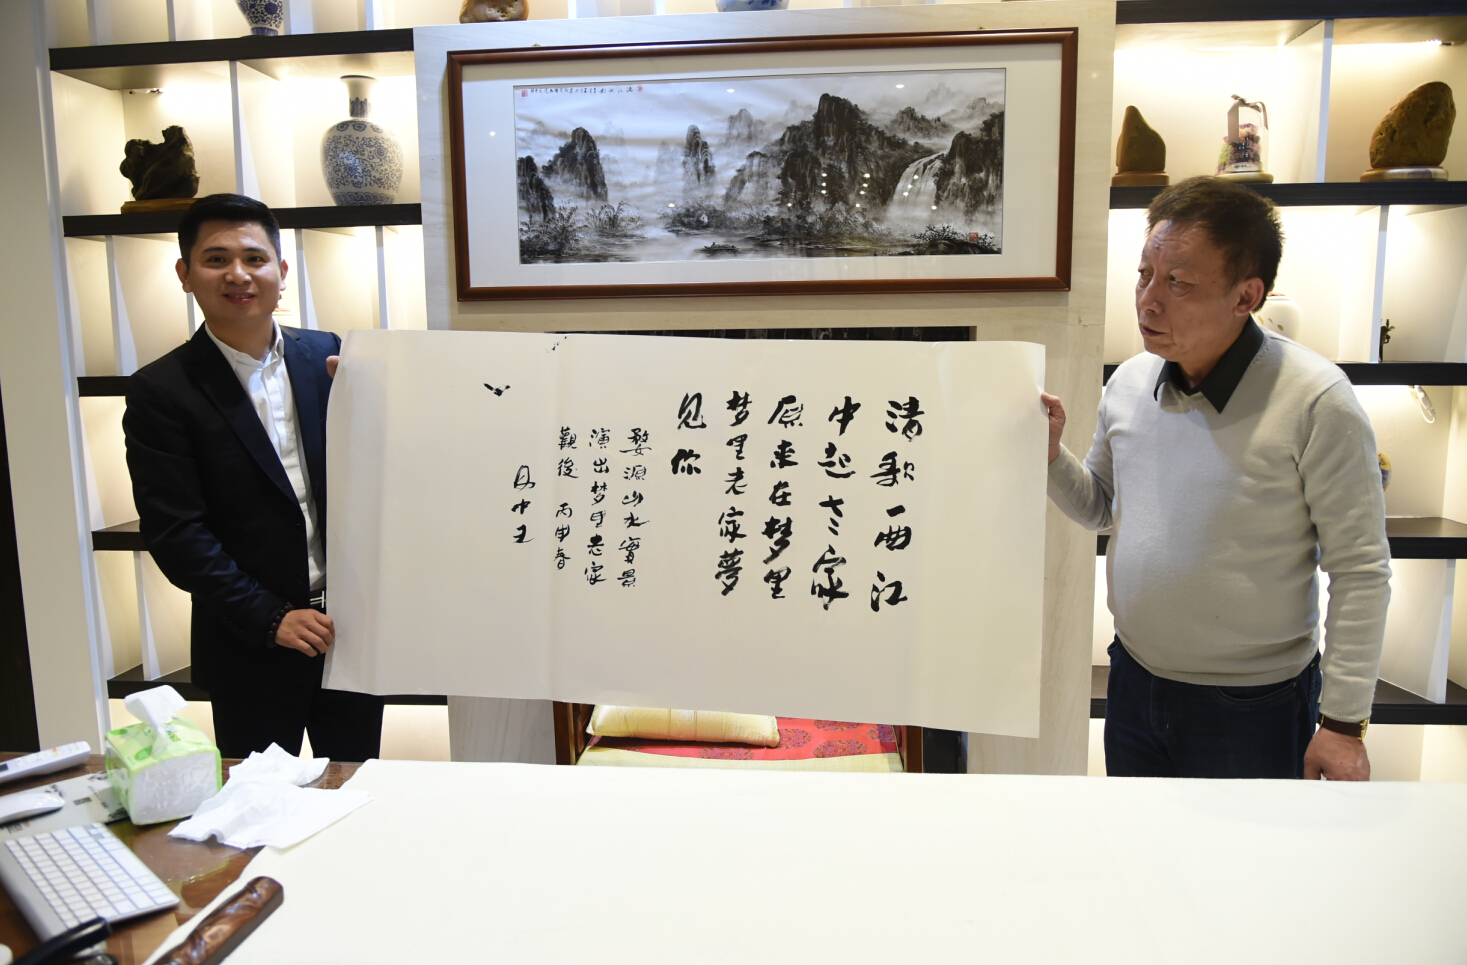 清歌一曲江
中起老家
原来在梦里
梦里老家夢
见你
婺源山水實景
演出梦里老家
觀後 丙申春